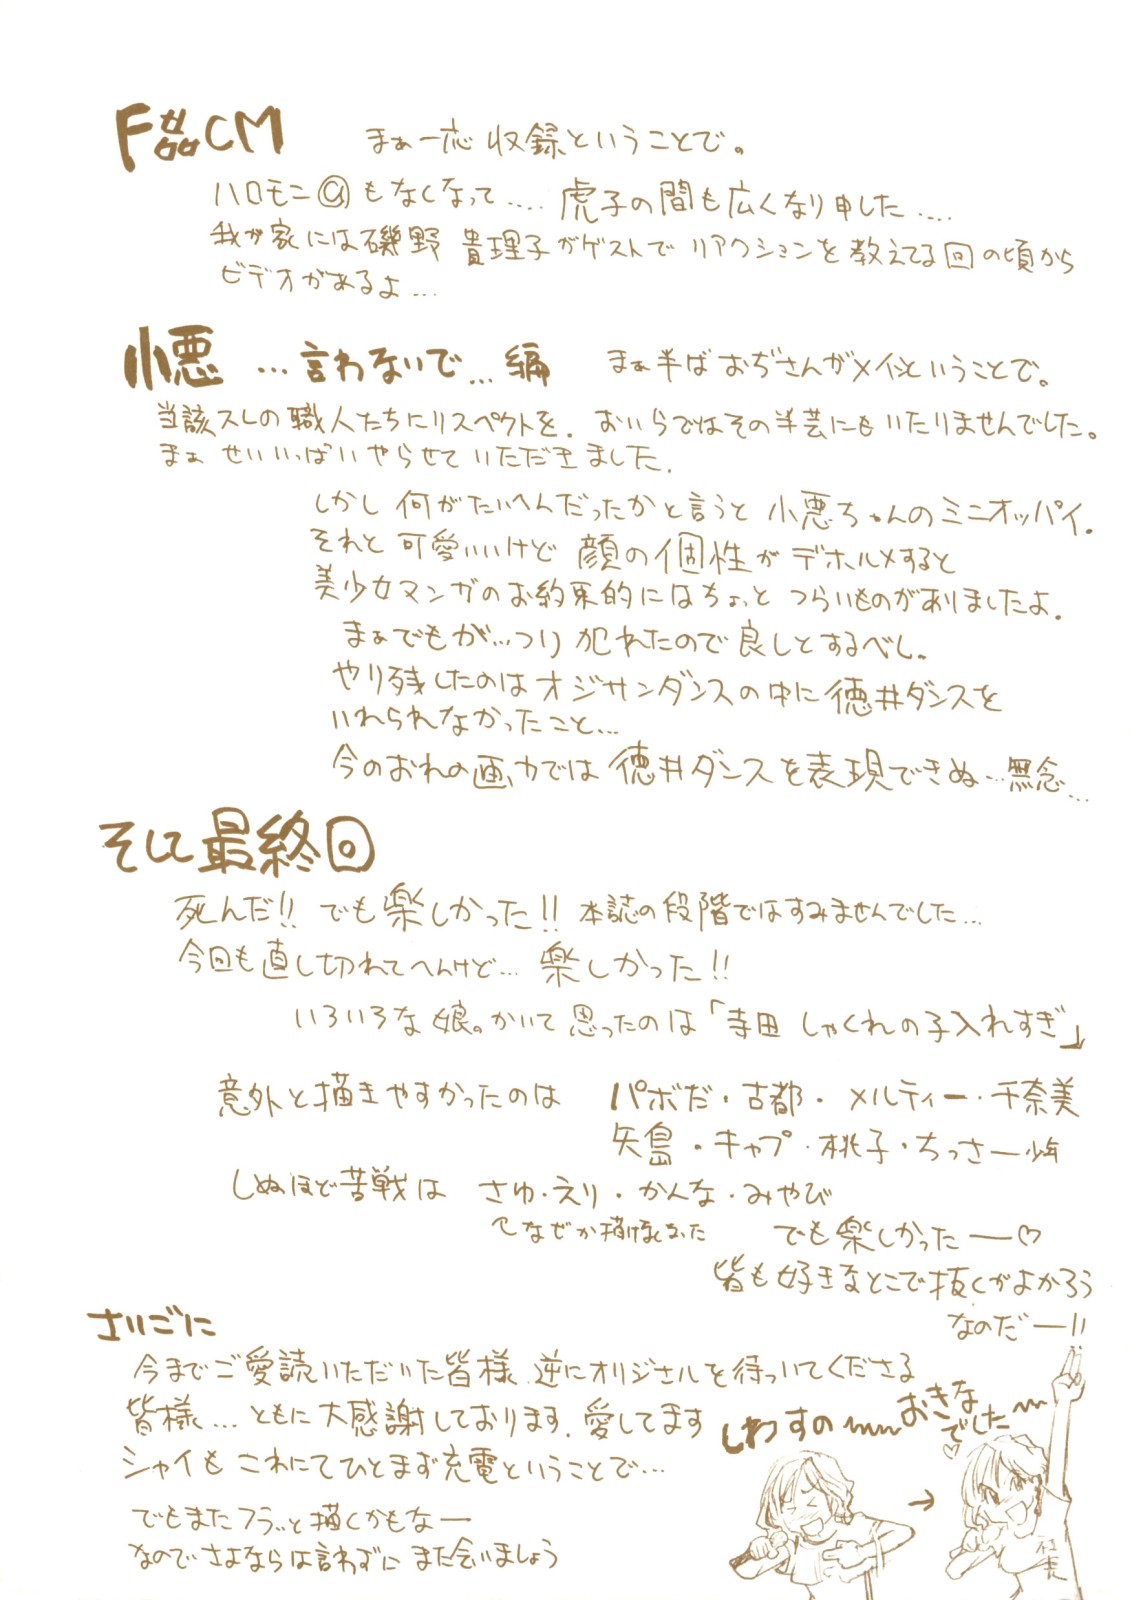 F CM
まぁ一応 収録ということで。
ハロモニ@もなくなって.... 虎子の間も広くなり申した....
我が家には磯野 貴理子がゲストで リアクションを教えてる回の頃から
ビデオがあるよ...
小悪 ...言わないで...編
まぁ半ば おぢさんがメインということで。
当該スレの職人たちにリスペクトを. おいらではその半芸にもいたりませんでした。
まぁ せいいっぱいやらせていただきました.
しかし 何がたいへんだったかと言うと 小悪ちゃんのミニオッパイ.
それと 可愛いいけど 顔の個性が デホルメすると
美少女マンガのお約束的にはちょっと つらいものがありましたよ.
まぁでもが...つり 犯れたので良しとするべし.
やり残したのはオジサンダンスの中に徳井ダンスを
いれられなかったこと...
今のおれの画力では 徳井ダンスを表現できぬ...無念...
そして最終回
死んだ!! でも楽しかった!! 本誌の段階ではすみませんでした...
今回も直し切れてへんけど... 楽しかった!!
いろいろな娘。かいて思ったのは「寺田 しゃくれの子入れすぎ」
意外と描きやすかったのは パボだ・古都・メルティー・千奈美
矢島・キャプ・桃子・ちっさー少年
しぬほど苦戦は さゆ・えり・かんな・みやび
なぜか
でも楽しかったー♡
皆も好きなとこで抜くがよかろう
なのだー!!
さいごに
今までご愛読いただいた皆様 逆にオリジナルを待っていてくださる
皆様...ともに大感謝しております. 愛してます
シャイもこれにてひとまず充電ということで...
でもまたフラッと描くかもなー
なのでさよならは言わずに また会いましょう
しわすの〜 おきな〜
でした
→
社長